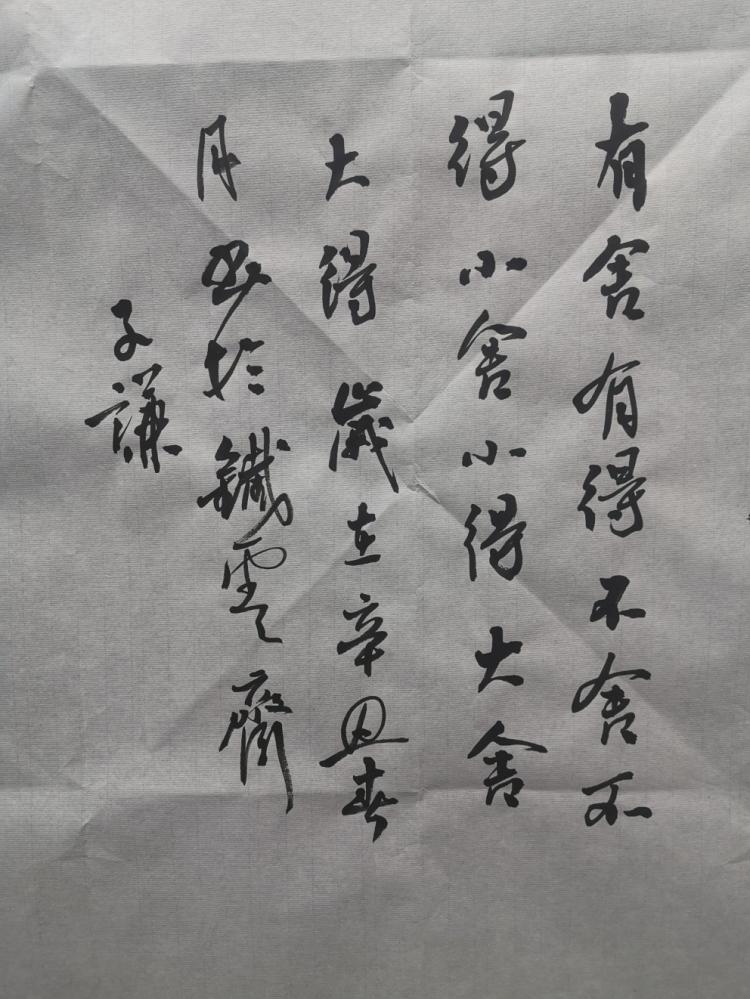 有舍有得不舍不
得小舍小得大舍
大得歲在辛丑春
月書於鐵雲齋
子謙